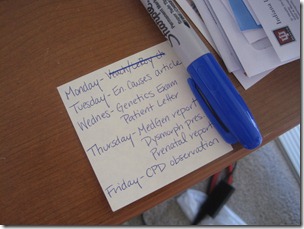 Monday-
Tuesday- En Causes article
Wednes- Genetics Exam
Patient Letter
Thursday- MedGen report
Dysmorph pres
Prenatal report
Friday- CPD observation